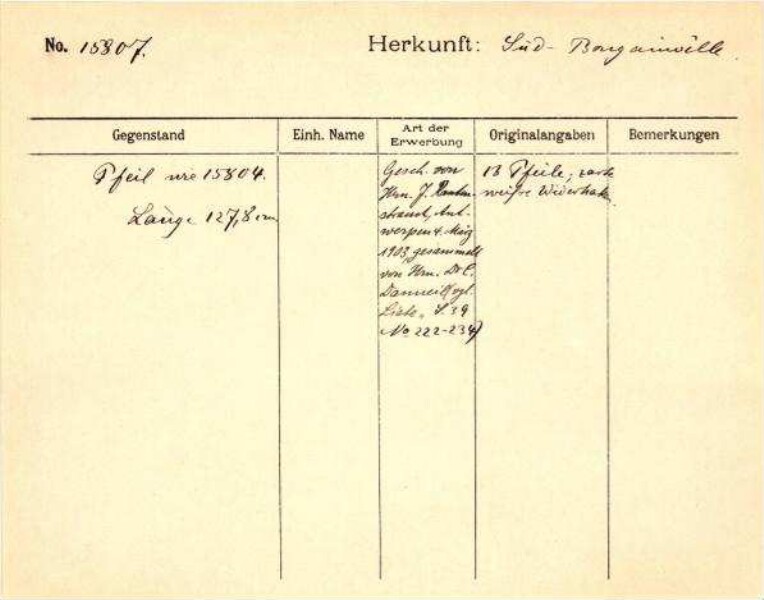 No. 15807.
Herkunft: Süd-Bougainville.
Gegenstand
Einh. Name
Art der Erwerbung
Originalangaben
Bemerkungen
Pfeil wie 15804.
Länge 127,8 cm
Gesch. von
Hrn. J.
Ant-
werpen 4. März
1903, gesammelt
von Hrn. Dr. C.
Danneil (vgl.
Liste, S. 39
No 222-234)
13 Pfeile; zarte
weiße Widerhaken